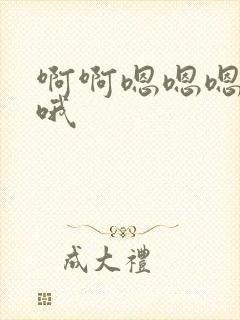 啊啊嗯嗯嗯
哦
成大禮